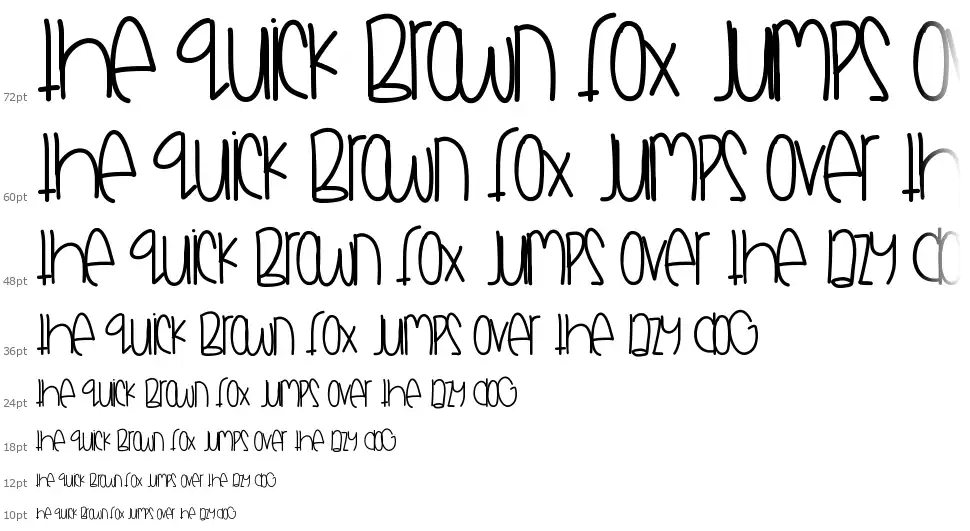 the quick brown fox jumps ov
72pt
the quick brown fox jumps over th
60pt
the quick brown fox jumps over the lazy do
48pt
the quick brown fox jumps over the lazy dog
36pt
the quick brown fox jumps over the lazy dog
24pt
the quick brown fox jumps over the lazy dog
18pt
the quick brown fox jumps over the lazy dog
12pt
the quick brown fox jumps over the lazy dog
10pt